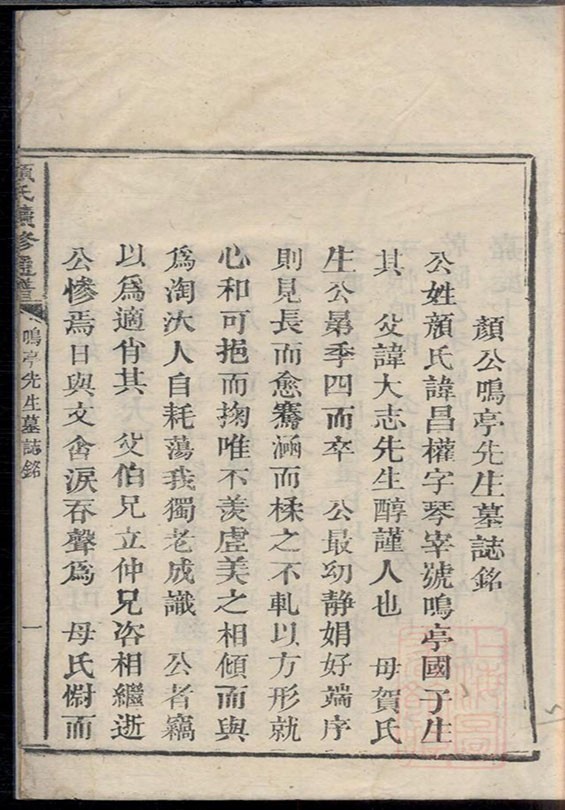 顏公鳴亭先生墓誌銘
公姓顏氏諱昌權字琴宰號鳴亭國子生
其 父諱大志先生醇謹人也 母賀氏
生公昜季四而卒 公最幼靜娟好端序
則見長而愈騫涵而楺之不軋以方形就
心和可抱而掬唯不羨虛美之相傾而與
為淘汰人自耗蕩我獨老成識 公者竊
以為適肖其 父伯兄立仲兄咨相繼逝
公慘焉日與文舍淚吞聲為 母氏慰而
顏氏續修通譜
鳴亭先生墓誌銘
一